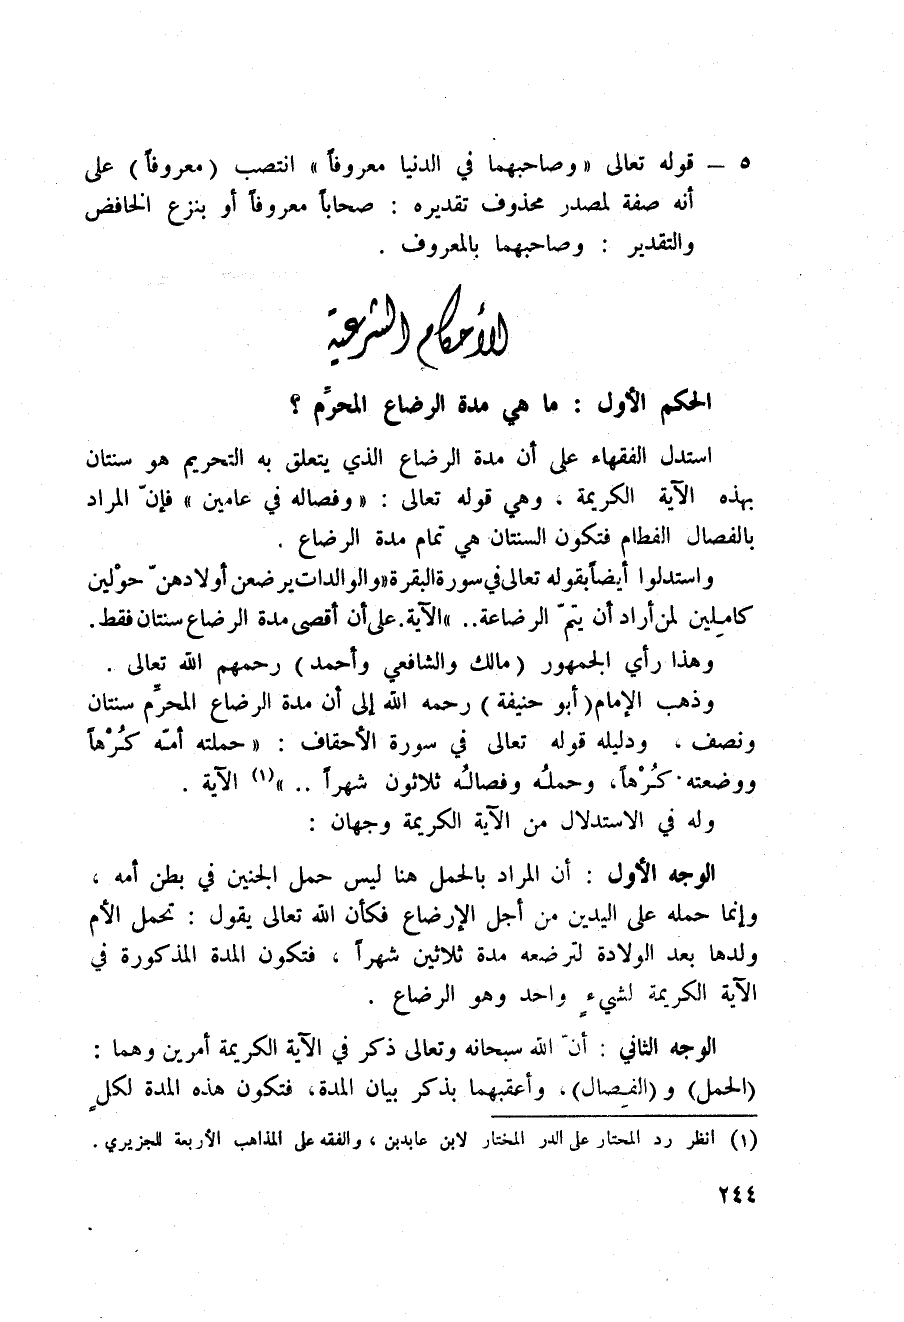 ٥ ــ قوله تعالى « وصاحبهما في الدنيا معروفاً » انتصب ( معروفاً ) على
أنه صفة لمصدر محذوف تقديره : صحاباً معروفاً أو بنزع الخافض
والتقدير : وصاحبهما بالمعروف .
الأحكام الشرعية
الحكم الأول : ما هي مدة الرضاع المحرِّم ؟
استدل الفقهاء على أن مدة الرضاع الذي يتعلق به التحريم هو سنتان
بهذه الآية الكريمة ، وهي قوله تعالى : « وفصاله في عامين » فإنّ المراد
بالفصال الفطام فتكون السنتان هي تمام مدة الرضاع .
واستدلوا أيضاً بقوله تعالى في سورة البقرة «والوالدات يرضعن أولادهنّ حوْلين
كامِلين لمن أراد أن يتمّ الرضاعة.. » الآية. على أن أقصى مدة الرضاع سنتان فقط.
وهذا رأي الجمهور ( مالك والشافعي وأحمد ) رحمهم الله تعالى .
وذهب الإمام ( أبو حنيفة ) رحمه الله إلى أن مدة الرضاع المحرِّم سنتان
ونصف ، ودليله قوله تعالى في سورة الأحقاف : « حملته أمّه كُرْهاً
ووضعته كُرْهاً، وحملُه وفصالُه ثلاثون شهراً .. »(١) الآية .
وله في الاستدلال من الآية الكريمة وجهان :
الوجه الأول : أن المراد بالحمل هنا ليس حمل الجنين في بطن أمه ،
وإنما حمله على اليدين من أجل الإرضاع فكأن الله تعالى يقول : تحمل الأم
ولدها بعد الولادة لترضعه مدة ثلاثين شهراً ، فتكون المدة المذكورة في
الآية الكريمة لشيءٍ واحد وهو الرضاع .
الوجه الثاني : أنّ الله سبحانه وتعالى ذكر في الآية الكريمة أمرين وهما :
(الحمل) و (الفِصال) ، وأعقبهما بذكر بيان المدة، فتكون هذه المدة لكلٍ
(١) انظر رد المحتار على الدر المختار لابن عابدين ، والفقه على المذاهب الأربعة للجزيري .
٢٤٤